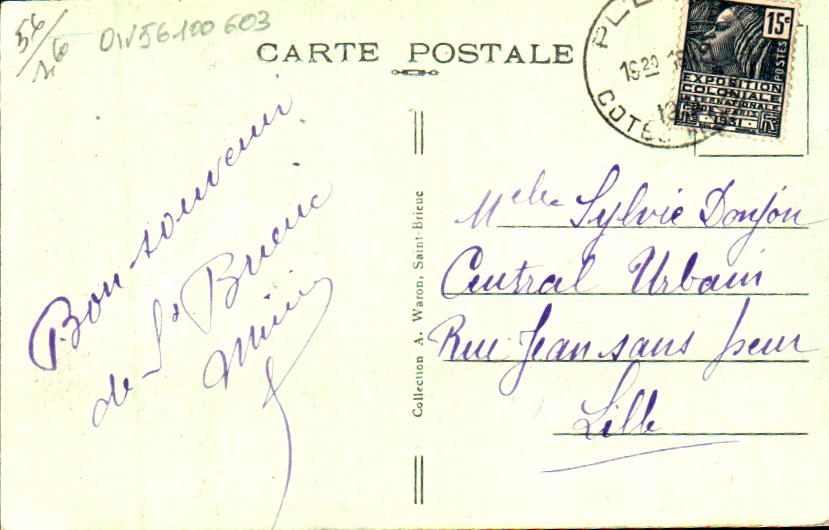 56/26 OW56100603
CARTE POSTALE
15c
POSTES
EXPOSITION
COLONIALE
INTERNATIONALE
DE PARIS
1931
COTES
Bon souvenir
de St Brieuc
Mimi
Collection A. Waron, Saint-Brieuc
Melle Sylvie Donjon
Central Urbain
Rue Jean sans peur
Lille